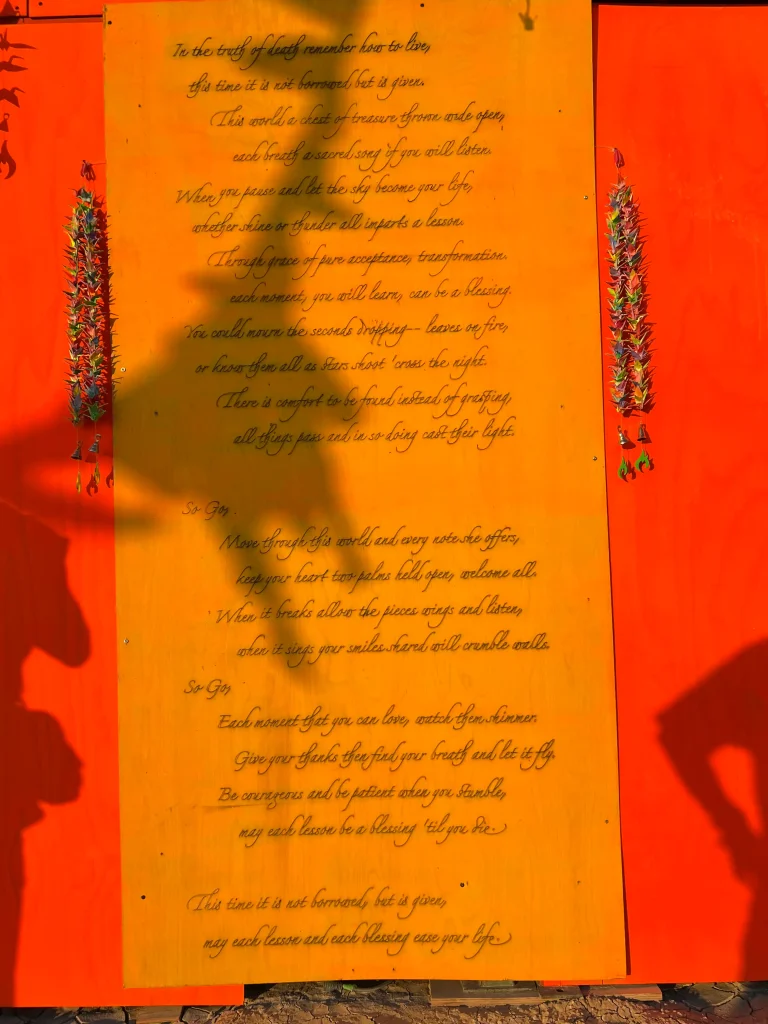 In the truth of death remember how to live,
this time it is not borrowed but is given.
This world a chest of treasure thrown wide open,
each breath a sacred song if you will listen.
When you pause and let the sky become your life,
whether shine or thunder all imparts a lesson.
Through grace of pure acceptance, transformation.
each moment, you will learn, can be a blessing.
You could mourn the seconds dripping -- leaves on fire,
or know them all as stars shoot 'cross the night.
There is comfort to be found instead of grasping,
all things pass and in so doing cast their light.
So Go,
Move through this world and every note she offers,
keep your heart two palms held open, welcome all.
When it breaks allow the pieces wings and listen,
when it sings your smiles shared will crumble walls.
So Go,
Each moment that you can love, watch them shimmer.
Give your thanks then find your breath and let it fly.
Be courageous and be patient when you stumble,
may each lesson be a blessing 'til you die.
This time it is not borrowed, but is given,
may each lesson and each blessing ease your life.